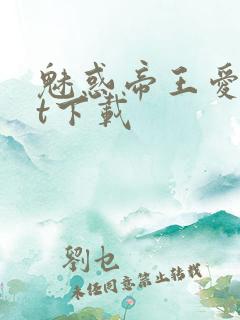 魅惑帝王愛
t下載
劉乜
未经同意禁止转载